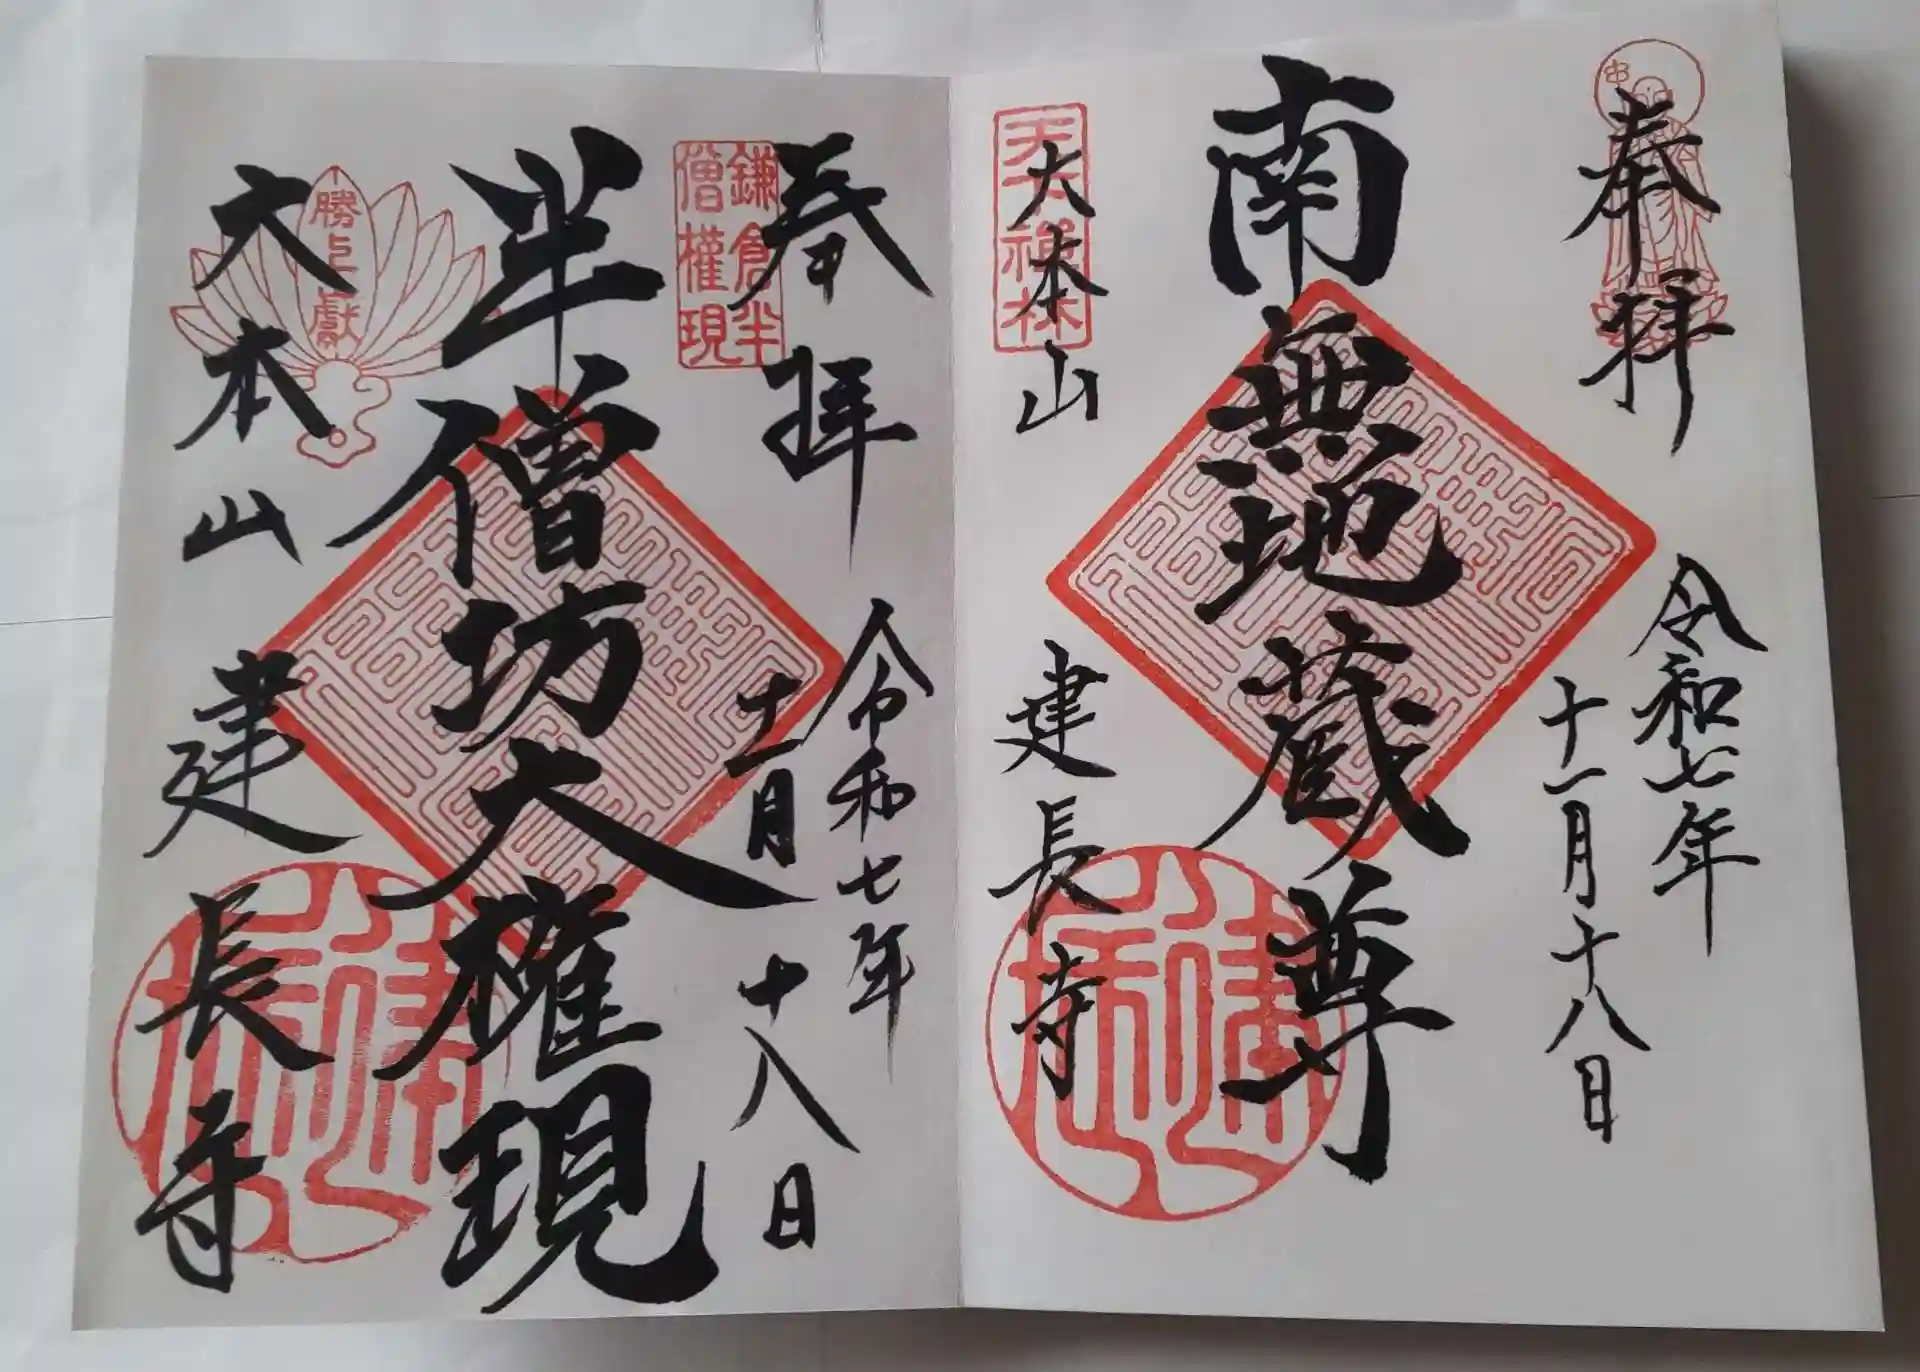 奉拝
令和七年
十一月十八日
南無地蔵尊
天下禅林
大本山 建長寺
奉拝
令和七年
十一月十八日
鎌倉半
僧權現
半僧坊大権現
勝上嶽
大本山 建長寺